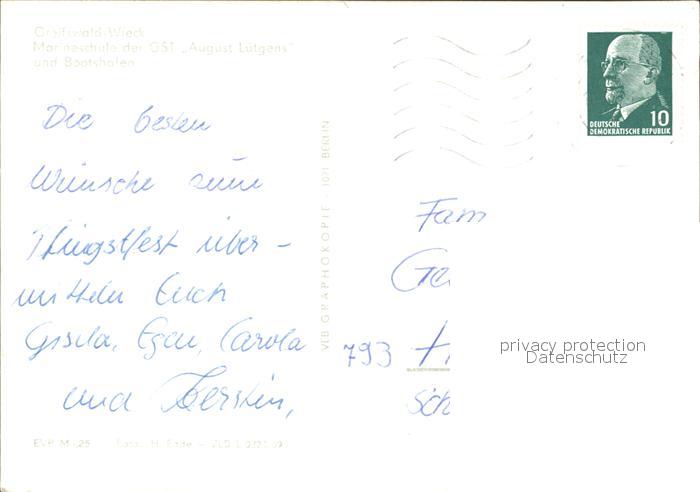 Greifswald-Wieck
Marineschule der GST „August Lütgens"
und Bootshafen
Die besten
Wünsche zum
Pfingstfest über-
mitteln Euch
Gisela, Egon, Carola
und Kerstin,
VEB GRAPHOKOPIE · 1071 BERLIN
10
DEUTSCHE
DEMOKRATISCHE REPUBLIK
Fam
793
Sch
privacy protection
Datenschutz
EVP M -,25